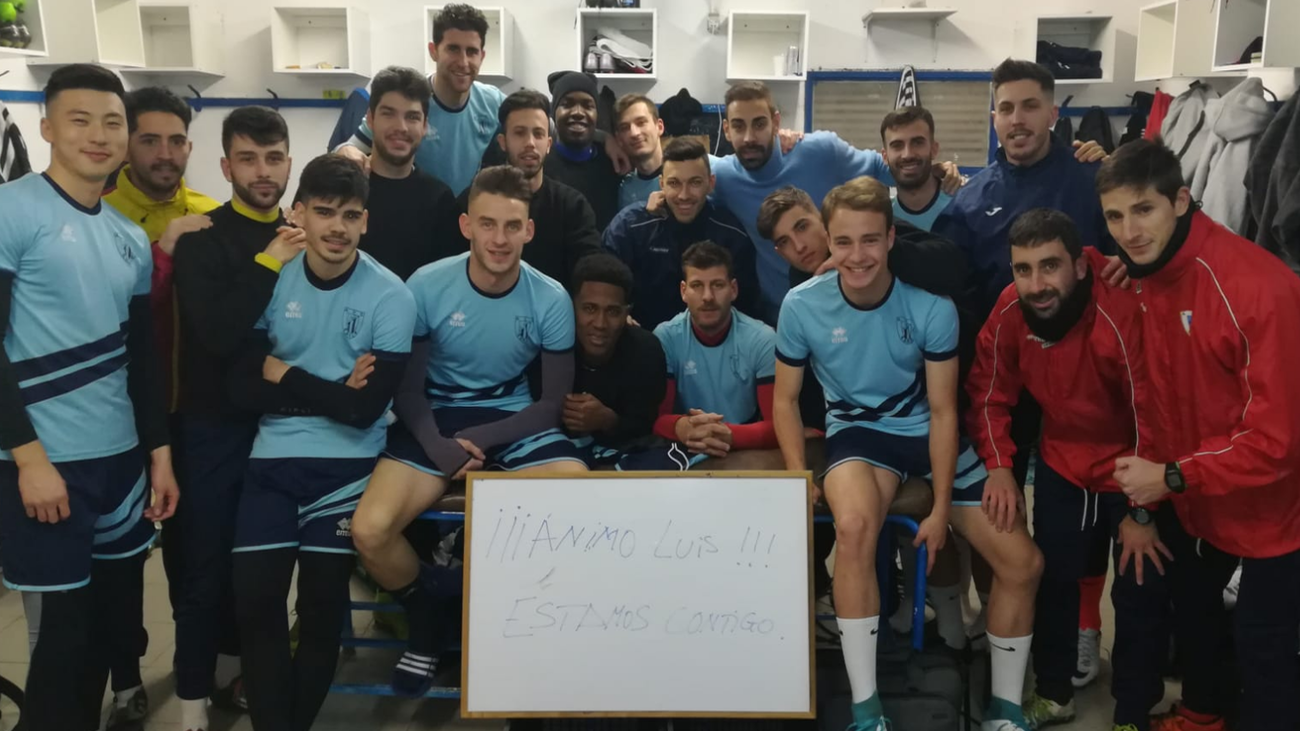 ¡¡¡ÁNIMO LUIS!!!
ÉSTAMOS CONTIGO.